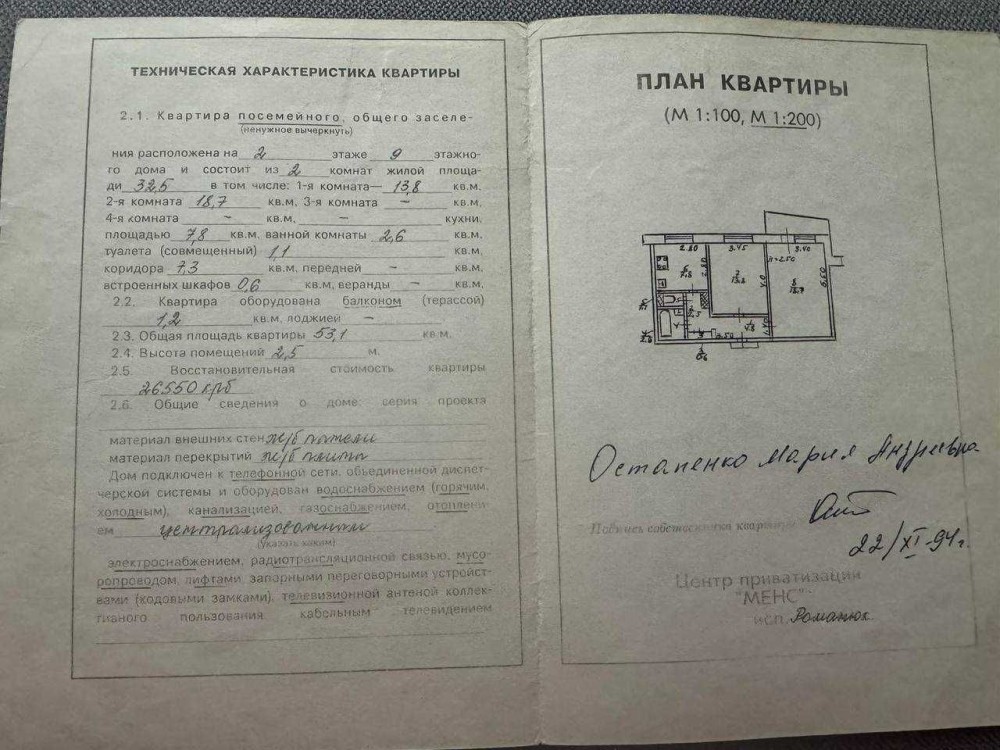 ТЕХНИЧЕСКАЯ ХАРАКТЕРИСТИКА КВАРТИРЫ
2.1. Квартира посемейного, общего заселе-
(ненужное вычеркнуть)
ния расположена на 2 этаже 9 этажно-
го дома и состоит из 2 комнат жилой площа-
ди 32,5 в том числе: 1-я комната— 13,8 кв.м.
2-я комната 18,7 кв.м, 3-я комната – кв.м.
4-я комната – кв.м, – кухни,
площадью 7,8 кв.м, ванной комнаты 2,6 кв.м,
туалета (совмещенный) 1,1 кв.м,
коридора 7,3 кв.м, передней – кв.м,
встроенных шкафов 0,6 кв.м, веранды – кв.м,
2.2. Квартира оборудована балконом (терассой)
1,2 кв.м, лоджией –
2.3. Общая площадь квартиры 53,1 кв.м.
2.4. Высота помещений 2,5 м.
2.5 Восстановительная стоимость квартиры
26550 крб
2.6. Общие сведения о доме: серия проекта
материал внешних стен ж/б панели
материал перекрытий ж/б плиты
Дом подключен к телефонной сети, объединенной диспет-
черской системы и оборудован водоснабжением (горячим,
холодным), канализацией, газоснабжением, отоплени-
ем централизованным
(указать каким)
электроснабжением, радиотрансляционной связью, мусо-
ропроводом, лифтами, запорными переговорными устройст-
вами (кодовыми замками), телевизионной антеной коллек-
тивного пользования кабельным телевидением
ПЛАН КВАРТИРЫ
(М 1:100, М 1:200)
2.80 3.45 3.40
h=2.50
6 7.8 2.80
7 13.8 4.0
8 18.7 5.50
4.8 1.40
Остапенко Мария Андреевна
Подпись собственника квартиры
22/XI-94г.
Центр приватизации
"МЕНС"
исп. Романюк